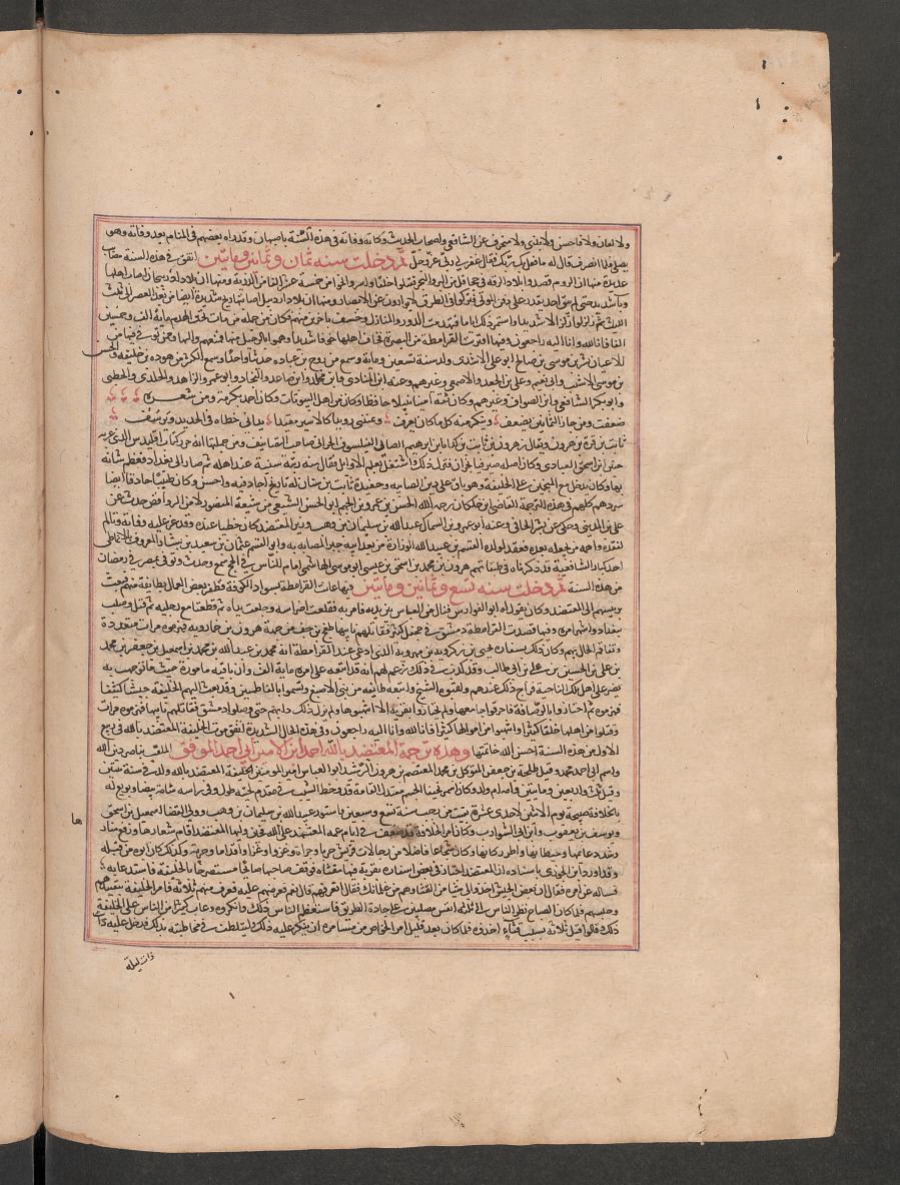 ولا لعان ولا فاحش ولا بذي ولا منحرف عن الشافعي واصحاب الحديث وكانت وفاته في هذه السنة باصبهان وقد راه بعضهم في المنام بعد وفاته وهو
يصلي فلما انصرف قال له ما فعل بك ربك فقال غفر لي ربي عز وجل ثم دخلت سنه ثمان وثمانين ومائتين اتفق في هذه السنة مصائب
عديدة منها ان الروم قصدوا بلاد الرقة في جحافل من البر والبحر فقتلوا خلقا واسروا نحوا من خمسة عشر الفا من الذرية ومنها ان بلاد اذربيجان اصاب اهلها
وباء شديد حتى لم يبق احد يقدر على دفن الموتى فتركوا في الطرق لا يوارون ومنها ان بلاد اردبيل اصابها ريح شديدة ايضا من بعد العصر الى ثلث
الليل ثم زلزلوا زلزالا شديدا واستمر ذلك اياما فتهدمت الدور والمنازل وخسف باخرين منهم فكان من جملة من مات تحت الهدم ماية الف وخمسين
الفا فانا لله وانا اليه راجعون وفيها اقترب القرامطة من البصرة فخاف اهلها خوفا شديدا وهموا بالرحيل منها فمنعهم واليها وممن توفي فيها من
الاعيان بشر بن موسى بن صالح ابو علي الاسدي ولد سنة تسعين وماية وسمع من روح بن عبادة حديثا واحدا وسمع الكثير من هوذة بن خليفة والحسن
بن موسى الاشيب وابي نعيم وعلي بن الجعد والاصمعي وغيرهم وعنه ابن المنادي وابن مخلد وابن صاعد والنجاد وابو عمر الزاهد والخلدي والخطبي
وابو بكر الشافعي وابن الصواف وغيرهم وكان ثقة امينا نبيلا حافظا وكان من اهل البيوتات وكان احمد يكرمه ومن شعره
ضعفت ومن جاز الثمانين يضعف وينكر منه كل ما كان يعرف ويمشي رويدا كالاسير مقيدا يداني خطاه في الحديد ويرسف
ثابت بن قرة بن هرون ويقال بن زهرون بن ثابت بن كدام بن ابرهيم الصابي الفيلسوف الحراني صاحب التصانيف ومن جملتها انه حرر كتاب اقليدس الذي عربه
حنين بن اسحق العبادي وكان اصله صيرفيا بحران فترك ذلك واشتغل بعلم الاوايل فنال منه رتبة سنية عند اهله ثم صار الى بغداد فعظم شانه
بها وكان يدخل مع المنجمين على الخليفة وهو باق على دين الصابيه وحفيده ثابت بن سنان له تاريخ اجاد فيه واحسن وكان طبيبا حاذقا ايضا
سردهم كلهم في هذه الترجمة القاضي ابن خلكان رحمه الله الحسن بن عمرو بن الجهم ابو الحسن الشيعي من شيعة المنصور لا من الروافض حدث عن
علي بن المديني وحكى عن بشر الحافي وعنه ابو عمرو بن السماك عبيد الله بن سليمان بن وهب وزير المعتضد كان حظيا عنده وقد عز عليه وفاته وتالم
لفقده واهمه من يجعله بعده فعقد لولده القسم بن عبيد الله الوزارة من بعد ابيه جبرا لمصابه به وابو القسم عثمان بن سعيد بن بشار المعروف بالانماطي
احد كبار الشافعية وقد ذكرناه في طبقاتهم هرون بن محمد بن اسحق بن عيسى ابو موسى الهاشمي امام للناس في الحج سمع وحدث وتوفي بمصر في رمضان
من هذه السنة ثم دخلت سنه تسع وثمانين ومأتين فيها عاثت القرامطة بسواد الكوفة فظفر بعض العمال بطايفة منهم فبعث
برييسهم الى المعتضد وكان يقال له ابو الفوارس فنال من العباس بين يديه فامر به فقلعت اضراسه وخلعت يداه ثم قطعتا مع رجليه ثم قتل وصلب
ببغداد واشهر امره وفيها قصدت القرامطة دمشق في جحفل كثير فقاتلهم نايبها طغج بن جف من جهة هرون بن خمارويه فهزموه مرات متعددة
وتفاقم الحال بهم وكان ذلك بسفارة يحيى بن زكرويه بن مهرويه الذي ادعى عند القرامطة انه محمد بن عبد الله بن محمد بن اسمعيل بن جعفر بن محمد
بن علي بن الحسين بن علي بن ابي طالب وقد كذب في ذلك وزعم لهم انه قد اتبعه على امره ماية الف وأن ناقته مامورة حيث ما توجهت به
نصر على اهل تلك الناحية فراج ذلك عندهم ولقبوه الشيخ واتبعه طايفة من بني الاصبغ وتسموا بالفاطميين وقد بعث اليهم الخليفة جيشا كثيفا
فهزموه ثم اجتازوا بالرصافة فاحرقوا جامعها ولم يجتازوا بقرية الا انتهبوها ولم يزل ذلك دابهم حتى وصلوا دمشق فقاتلهم نايبها فهزموه مرات
وقتلوا من اهلها خلقا كثيرا وانتهبوا من اموالها كثيرا فانا لله وانا اليه راجعون وفي هذه الحال الشديدة اتفق موت الخليفة المعتضد بالله في ربيع
الاول من هذه السنة احسن الله خاتمتها وهذه ترجمة المعتضد بالله احمد ابن الامير ابي احمد الموفق الملقب بناصر دين الله
واسم ابي احمد محمد وقيل طلحة بن جعفر المتوكل بن محمد المعتصم بن هرون الرشيد ابو العباس امير المومنين الخليفة المعتضد بالله ولد في سنة ثنتين
وقيل ثلث واربعين ومايتين وامه ام ولد وكان اسمر نحيف الجسم معتدل القامة قد وخطه الشيب في مقدم لحيته طول وفي راسه شامة بيضا بويع له
بالخلافة صبيحة يوم الاثنين لاحدى عشرة بقيت من رجب سنة تسع وسبعين واستوزر عبيد الله بن سليمان بن وهب وولى القضا اسمعيل بن اسحق
ويوسف بن يعقوب وابن ابي الشوارب وكان امر الخلافة قد ضعف في ايام عمه المعتمد على الله فحين وليها المعتضد اقام شعارها ورفع منار
ها
وشد دعائمها وحيطانها واطد اركانها وكان شجاعا فاضلا من رجالات قريش حزما وجراة وغزوا وعزا واقداما وحرمة وكذلك كان ابوه من قبله
وقد اورد ابن الجوزي باسناده ان المعتضد اجتاز في بعض اسفاره بقرية فيها مقثاه فوقف صاحبها صايحا مستصرخا بالخليفة فاستدعا به
فساله عن امره فقال ان بعض الجيش اخذوا لي شيا من القثا وهم من غلمانك فقال اتعرفهم قال نعم فعرضهم عليه فعرف منهم ثلاثة فامر الخليفة بتقييدهم
وحبسهم فلما كان الصباح نظر الناس الى ثلاثة انفس مصلبين على جادة الطريق فاستعظم الناس ذلك وانكروه وعاب كثير من الناس على الخليفة
ذلك وقالوا قتل ثلاثة بسبب قثاء اخذوه فلما كان بعد قليل امر الخاص من مسامره ان ينكر عليه ذلك وليتلطف في مخاطبته بذلك فدخل عليه ذات
ذات ليلة